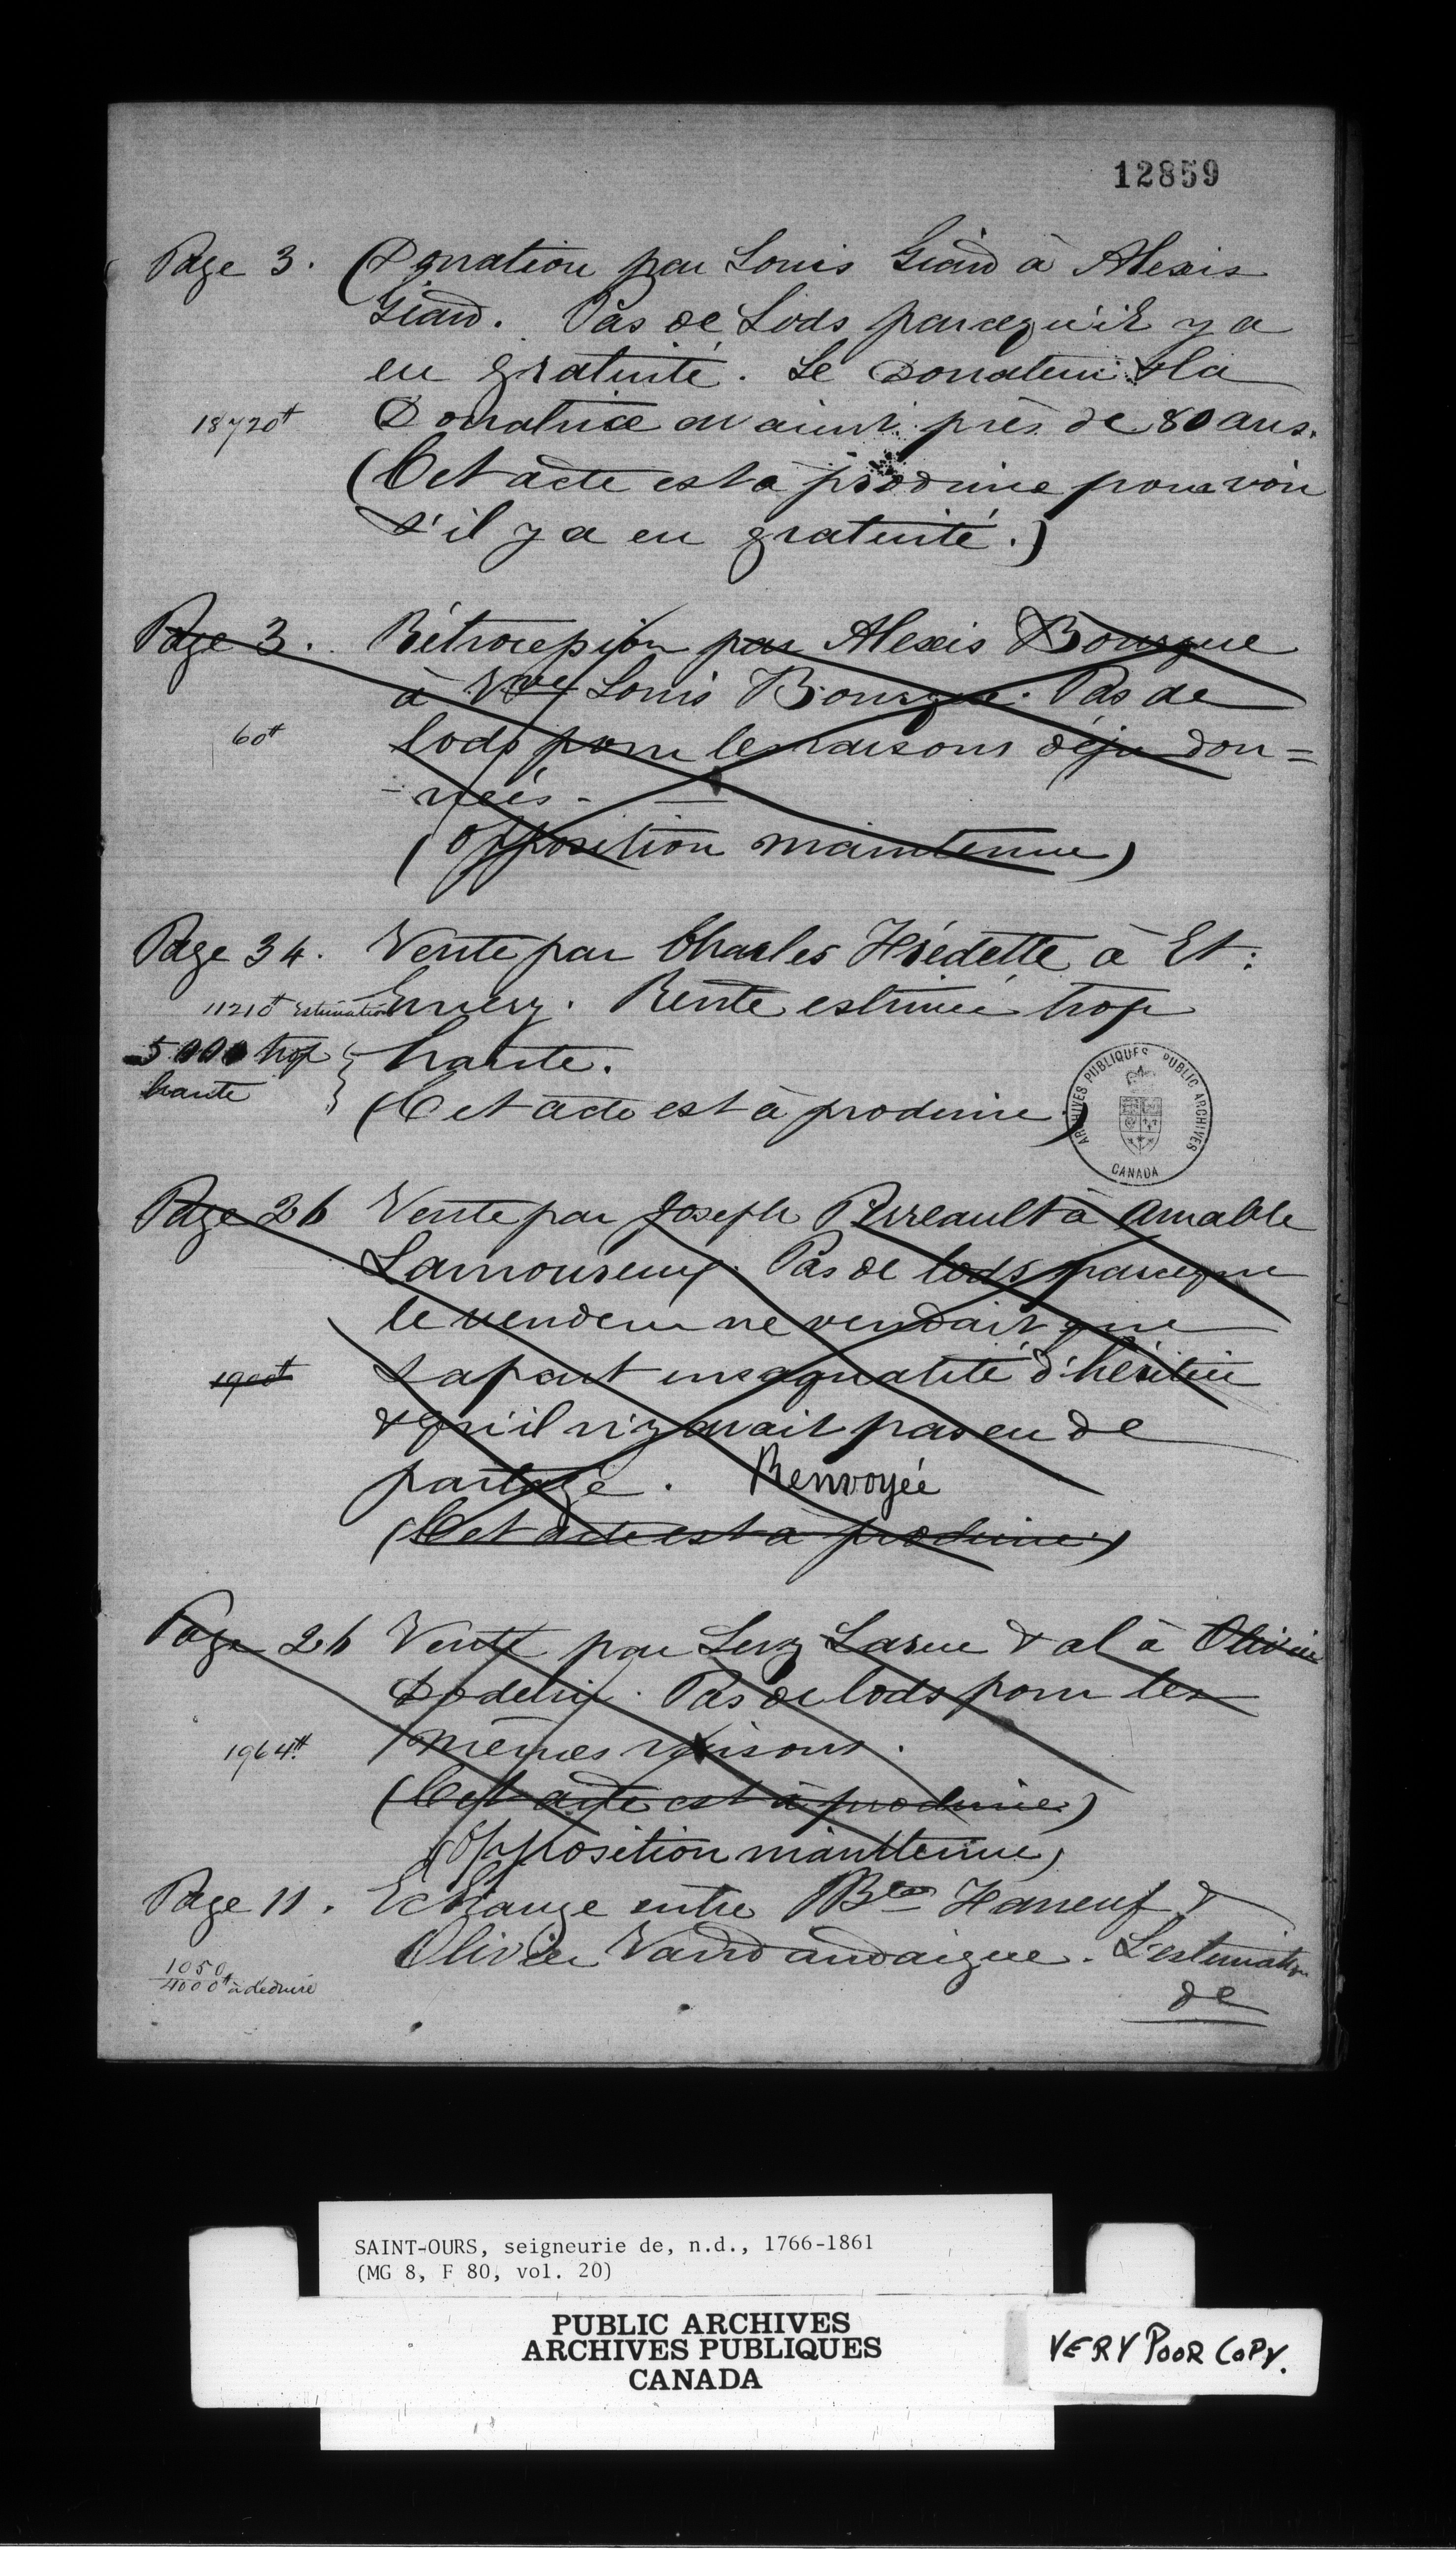 12859
Page 3. (Donation par Louis Giard à Alexis
Giard. Pas de Lods parcequ'il y a
eu gratuité. Le Donateur & la
18720# Donatrice avaient près de 80 ans.
(Cet acte est à produire pour voir
s'il y a eu gratuité.)
Page 3. Rétrocession par Alexis Bourque
à Vve Louis Bourque. Pas de
60# lods pour les raisons déja don=
-nées-
(Opposition maintenue)
Page 34. Vente par Charles Hrédette à Et:
11210# Estimation Emery. Rente estimée trop
5000 trop haute.
haute
(Cet acte est à produire)
ARCHIVES PUBLIQUES PUBLIC ARCHIVES
CANADA
Page 26 Vente par Joseph Perreault à Amable
Lamoureux. Pas de lods parceque
le vendeur ne vendait que
1900# sa part en sa qualité d'héritier
& qu'il n'y avait pas eu de
partage. Renvoyée
(Cet acte est à produire)
Page 26 Vente par Levy Larue & al à Olivier
Dodelin. Pas de lods pour les
1964# mêmes raisons.
(Cet acte est à produire)
(Opposition maintenue)
Page 11. Echange entre Bte Haneuf &
Olivier Vandandaigue. L'estimation
1050
4000# à déduire
de
SAINT-OURS, seigneurie de, n.d., 1766-1861
(MG 8, F 80, vol. 20)
PUBLIC ARCHIVES
ARCHIVES PUBLIQUES
CANADA
VERY POOR COPY.